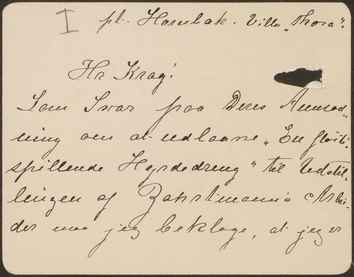 I pt. Hornbæk. Villa „Thora".
Hr Krag!
Som Svar paa Deres Anmod-
ning om at udlaane „En fløjte-
spillende Hyrdedreng" til Udstil-
lingen af Zahrtmanns Arbei-
der maa jeg beklage, at jeg er